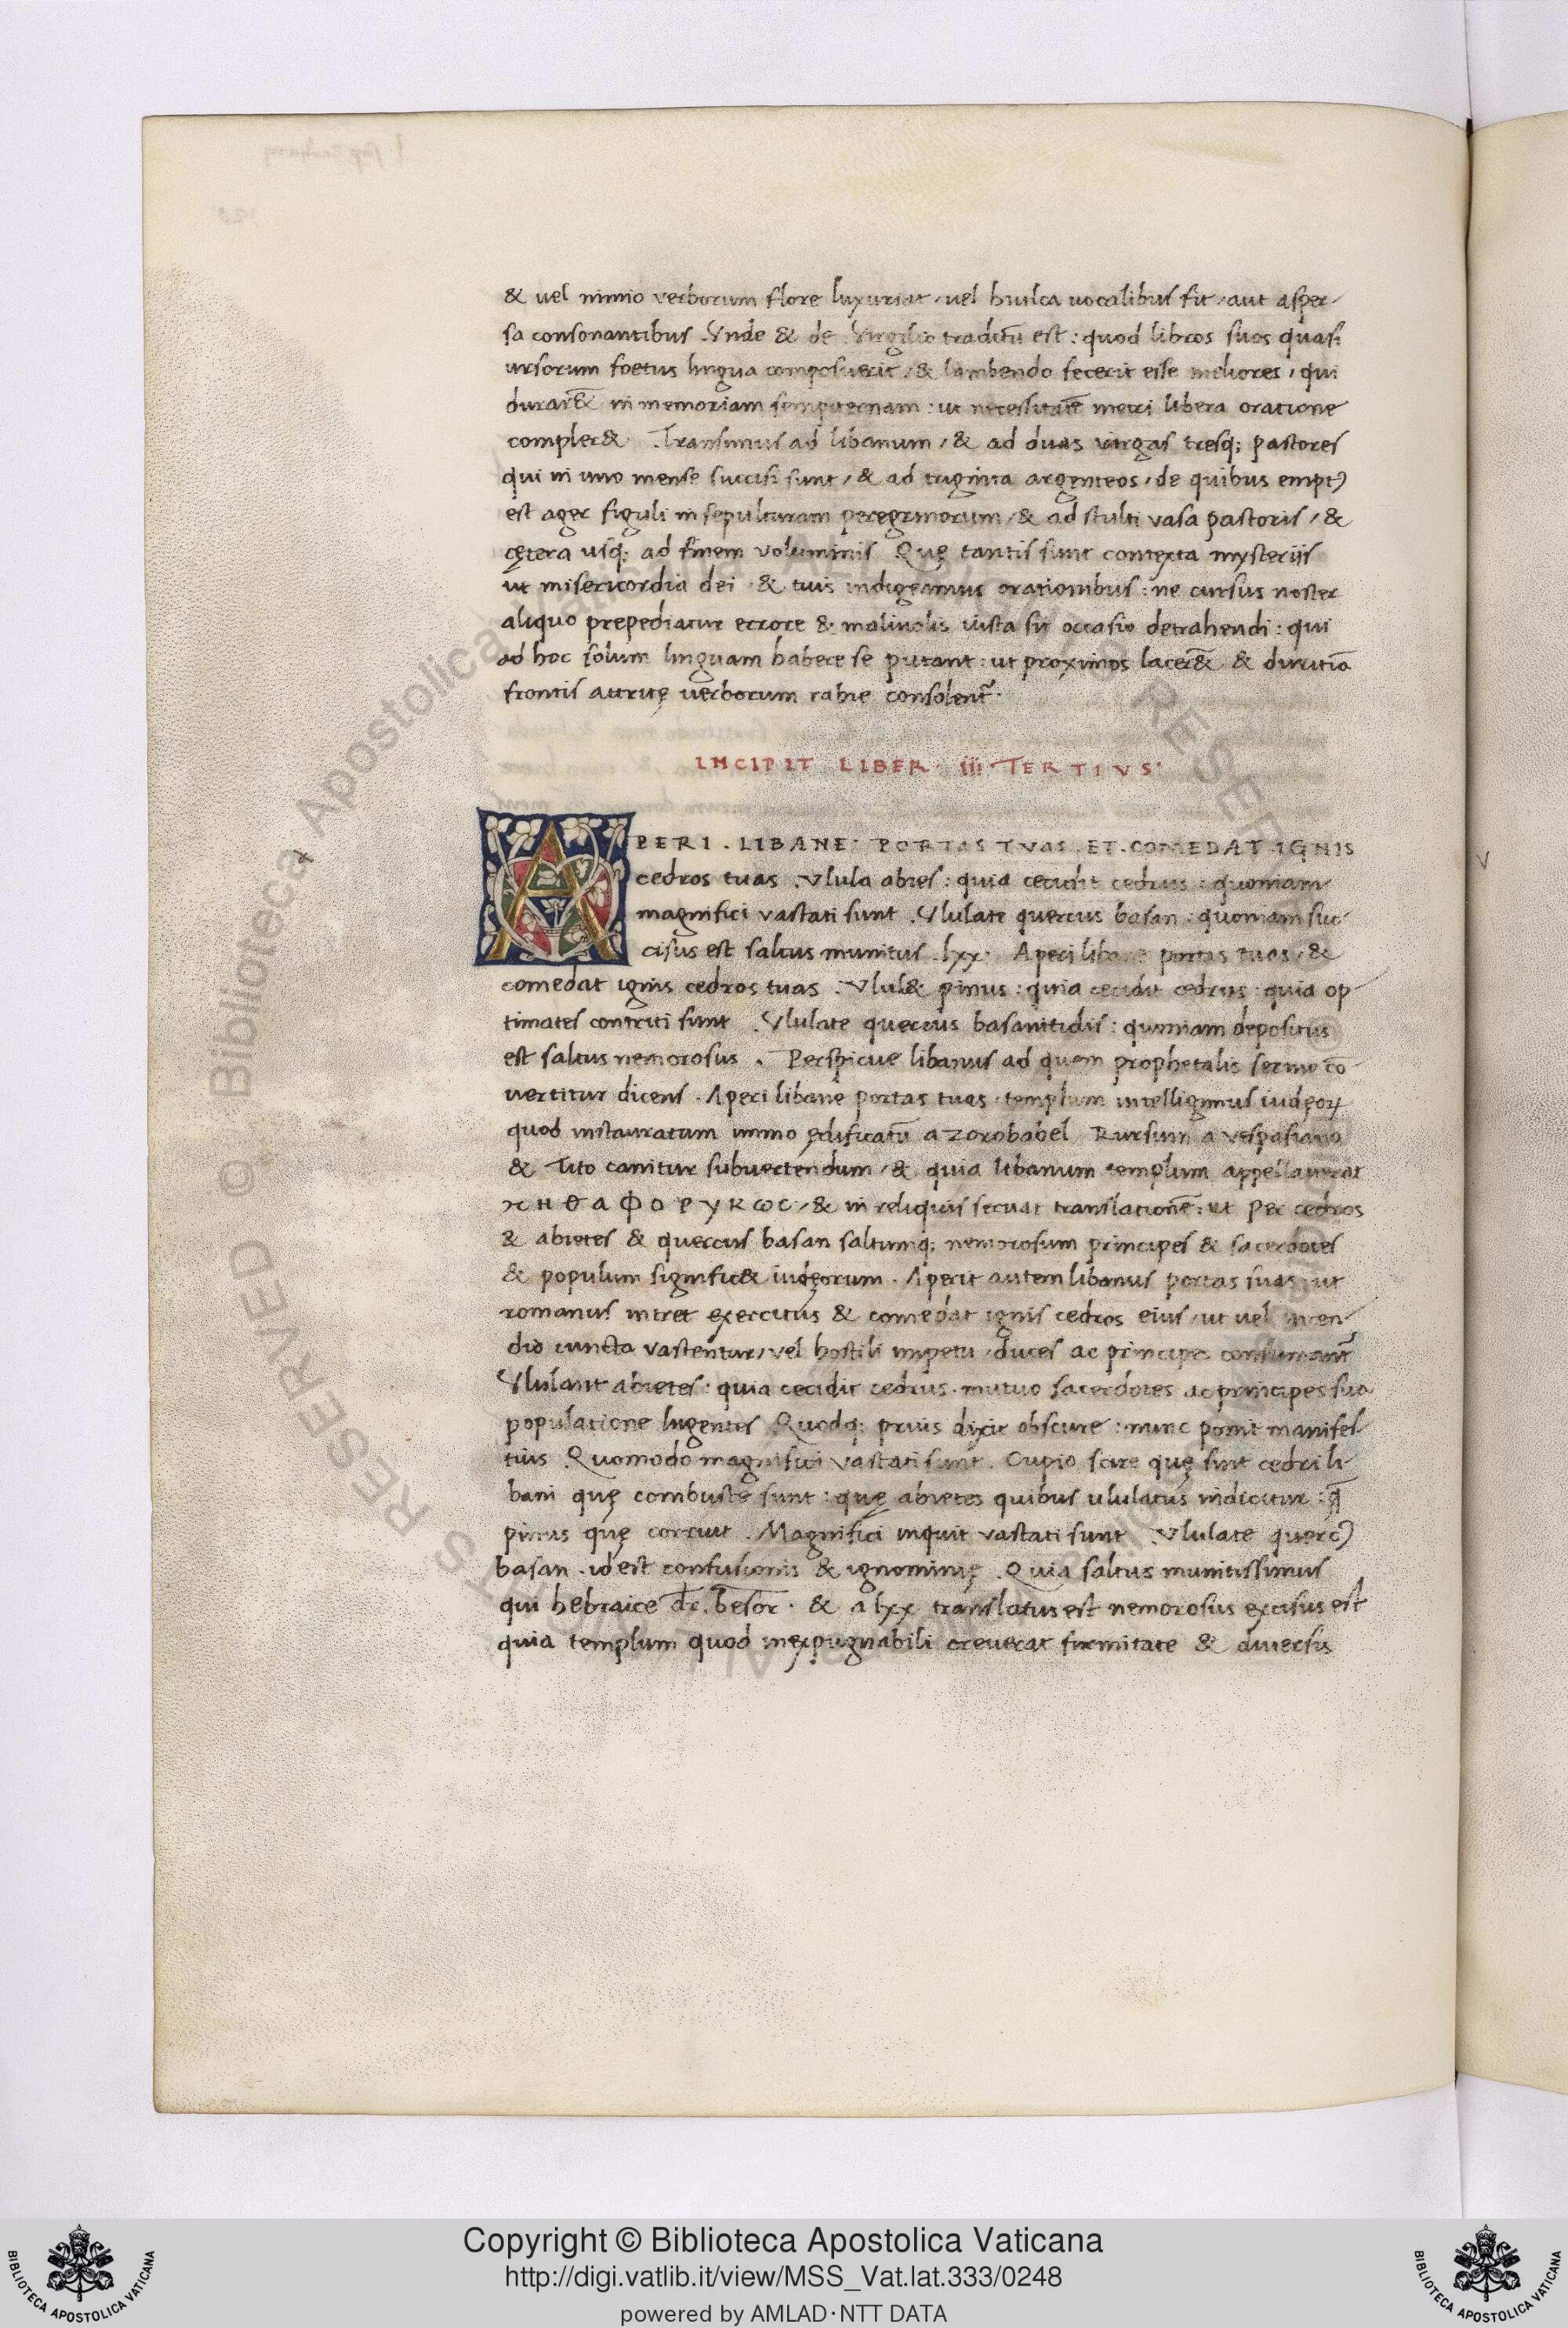 & uel nimio verborum flore luxuriat, uel hiulca uocalibus fit, aut asper-
sa consonantibus. Vnde & de Virgilio traditũ est: quod libros suos quasi
ursorum foetus lingua composuerit, & lambendo fecerit esse meliores, qui
durar& in memoriam sempiternam: ut necessitatẽ metri libera oratione
compler& Transimus ad libanum, & ad duas virgas tresq; pastores
qui in uno mense succisi sunt, & ad triginta argenteos, de quibus empt᾿
est ager figuli in sepulturam peregrinorum, & ad stulti vasa pastoris, &
cętera usq; ad finem voluminis Quę tantis sunt contexta mysteriis
ut misericordia dei & tuis indigeamus orationibus: ne cursus noster
aliquo prepediatur errore & maliuolis iusta sit occasio detrahendi: qui
ad hoc solum linguam habere se putant: ut proximos lacer& & duritiã
frontis attritę uerborum rabie consolent᷑.
INCIPIT LIBER III TERTIVS.
APERI. LIBANE PORTAS TVAS ET. COMEDAT IGNIS
cedros tuas. Vlula abies: quia cecidit cedrus: quoniam
magnifici vastati sunt. Vlulate quercus basan: quoniam suc-
cisus est saltus munitus. lxx. Aperi libane portas tuas, &
comedat ignis cedros tuas. Vlul& pinus: quia cecidit cedrus: quia op-
timates contriti sunt. Vlulate quercus basanitidis: quoniam depositus
est saltus nemorosus. Perspicue libanus ad quem prophetalis sermo cõ-
uertitur dicens. Aperi libane portas tuas. templum intelligimus iudęoꝝ
quod instauratum immo ędificatũ a zorobabel Rursum a vespasiano
& Tito canitur subuertendum, & quia libanum templum appellauerat
ϰΗΘΑΦΟΡΥΚωC, & in reliquis seruat translationẽ: ut per cedros
& abietes & quercus basan saltumq; nemorosum principes & sacerdotes
& populum signific& iudęorum. Aperit autem libanus portas suas, ut
romanus intret exercitus & comedat ignis cedros eius, ut uel incen-
dio cuncta vastentur, vel hostili impetu, duces ac principes consumant᷑
Vlulant abietes: quia cecidit cedrus. mutuo sacerdotes ac principes sua
populatione lugentes Quodq; prius dixit obscure: nunc ponit manifes-
tius Quomodo magnifici vastati sunt. Cupio scire quę sint cedri li-
bani quę combustę sunt: quę abietes quibus ululatus indicitur: q̃
pinus quę corruit. Magnifici inquit vastati sunt Vlulate querc᾿
basan. id est confusionis & ignominię. Quia saltus munitissimus
qui hebraice dr̄. besor. & a lxx translatus est nemorosus excisus est
quia templum quod inexpugnabili creuerat firmitate & diuersis
Copyright © Biblioteca Apostolica Vaticana
http://digi.vatlib.it/view/MSS_Vat.lat.333/0248
powered by AMLAD·NTT DATA
BIBLIOTECA APOSTOLICA VATICANA
BIBLIOTECA APOSTOLICA VATICANA